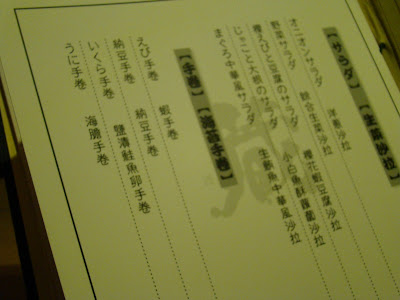 【サラダ】【生菜沙拉】
オニオンサラダ 洋蔥沙拉
野菜サラダ 綜合生菜沙拉
櫻えびと豆腐のサラダ 櫻花蝦豆腐沙拉
じゃこと大根のサラダ 小白魚酥蘿蔔沙拉
まぐろ中華風サラダ 生鮪魚中華風沙拉
【手巻】【海苔手卷】
えび手巻 蝦手卷
納豆手巻 納豆手卷
いくら手巻 鹽漬鮭魚卵手卷
うに手巻 海膽手卷